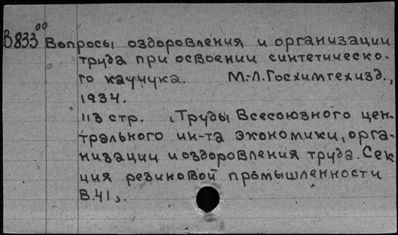 В833⁰⁰ Вопросы оздоровления и организации
труда при освоении синтетическо-
го каучука. М.-Л. Госхимтехизд.,
1934.
113 стр. (Труды Всесоюзного цен-
трального ин-та экономики, орга-
низации и оздоровления труда. Сек
ция резиновой промышленности
В.41).